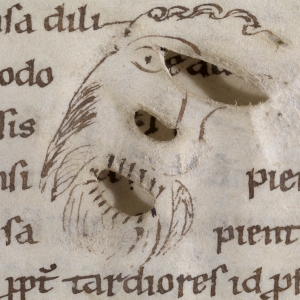 sa dili
odo
sis
nsi pien
sa pient
ppt̄ tardiores id p